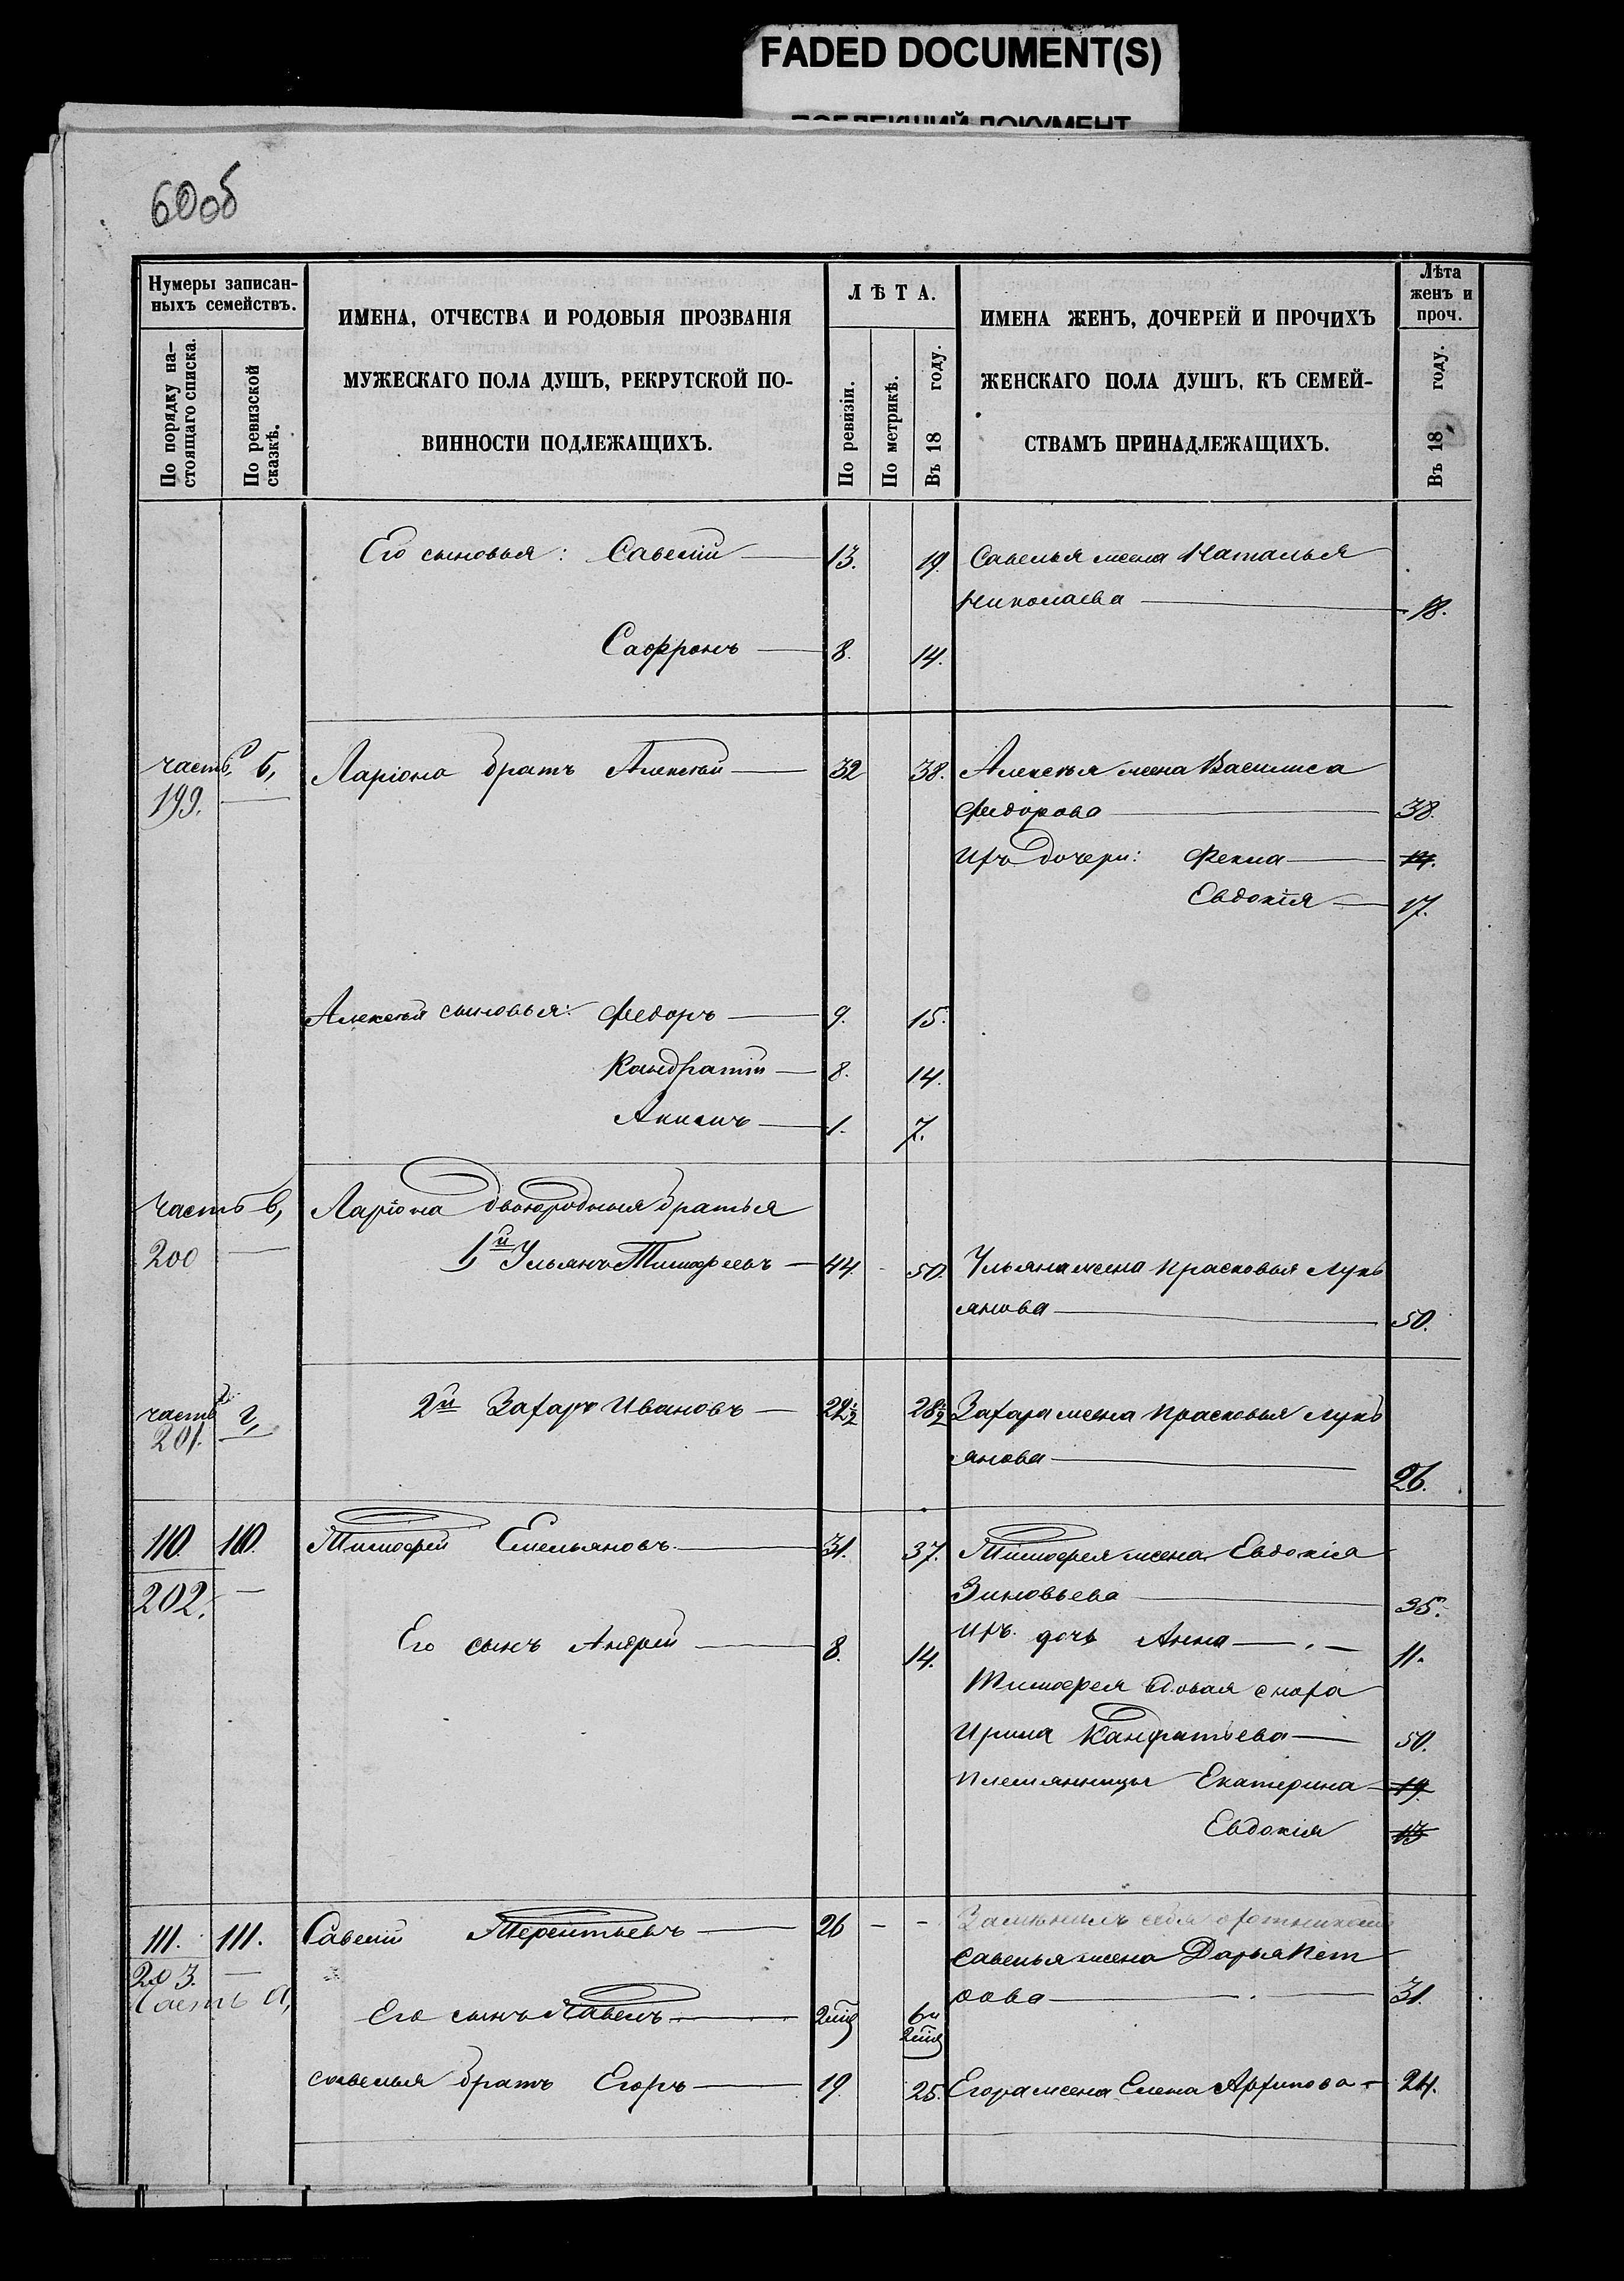 FADED DOCUMENT(S)
60об
Нумеры записан-
ныхъ семействъ.
По порядку на-
стоящаго списка.
По ревизской
сказкѣ.
ИМЕНА, ОТЧЕСТВА И РОДОВЫЯ ПРОЗВАНІЯ
МУЖЕСКАГО ПОЛА ДУШЪ, РЕКРУТСКОЙ ПО-
ВИННОСТИ ПОДЛЕЖАЩИХЪ.
ЛѢТА.
По ревизіи.
По метрикѣ.
Въ 18 году.
ИМЕНА ЖЕНЪ, ДОЧЕРЕЙ И ПРОЧИХЪ
ЖЕНСКАГО ПОЛА ДУШЪ, КЪ СЕМЕЙ-
СТВАМЪ ПРИНАДЛЕЖАЩИХЪ.
Лѣта
женъ и
проч.
Въ 18 году.
Его сыновья: Савелій 13. 19. Савелья жена Наталья
Николаева 18.
Софронъ 8. 14.
часть б, Ларіона братъ Алексѣй 32 38. Алексѣя жена Василиса
199. Федорова 38.
Ихъ дочери: Фекла 14.
Евдокія 17.
Алексѣя сыновья: Федоръ 9. 15.
Кондратій 8. 14.
Акимъ 1. 7.
Часть в, Ларіона двоюродныя братья
200 1й Ульянъ Тимофеевъ 44. 50. Ульяна жена Прасковья Лукь
янова 50.
часть г, 2й Захаръ Ивановъ 22½ 28½ Захара жена Прасковья Лукь
201. янова 26.
110. 110. Тимофей Емельяновъ 31. 37. Тимофея жена Евдокія
202. Зиновьева 35.
Его сынъ Андрей 8. 14. Ихъ дочь Анна 11.
Тимофея вдовая сноха
Ирина Кандратьева 50.
племянницы Екатерина 19.
Евдокія 13
111. 111. Савелій Терентьевъ 26 - - Замѣнилъ себя охотникомъ
203. Савелья жена Дарья Пет
Часть а, рова 31.
Его сынъ Павелъ
Савелья братъ Егоръ 19 25. Егора жена Елена Архипова 24.